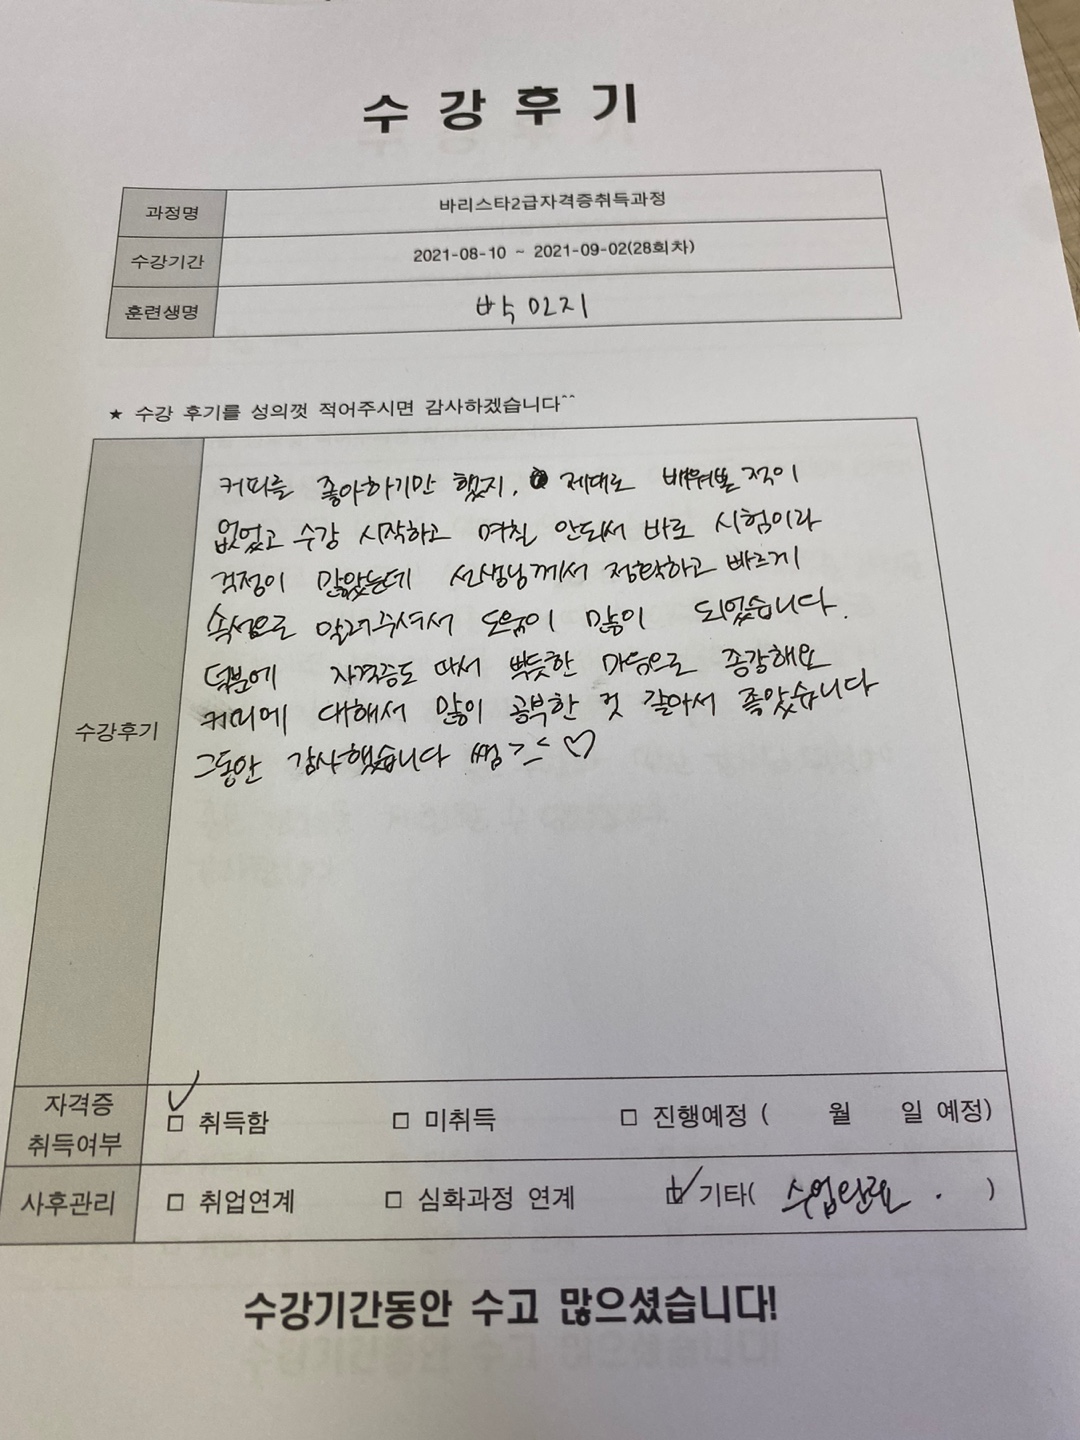 수강후기
과정명 바리스타2급자격증취득과정
수강기간 2021-08-10 ~ 2021-09-02(28회차)
훈련생명 박민지
★ 수강 후기를 성의껏 적어주시면 감사하겠습니다^^
수강후기
커피를 좋아하기만 했지, 제대로 배워본 적이
없었고 수강 시작하고 며칠 안되서 바로 시험이라
걱정이 많았는데 선생님께서 정확하고 빠르게
속성으로 알려주셔서 도움이 많이 되었습니다.
덕분에 자격증도 따서 뿌듯한 마음으로 종강해요
커피에 대해서 많이 공부한 것 같아서 좋았습니다
그동안 감사했습니다 쌤 >_< ♡
자격증 취득여부 ☑ 취득함 □ 미취득 □ 진행예정 ( 월 일 예정)
사후관리 □ 취업연계 □ 심화과정 연계 ☑ 기타( 수업만료 . )
수강기간동안 수고 많으셨습니다!